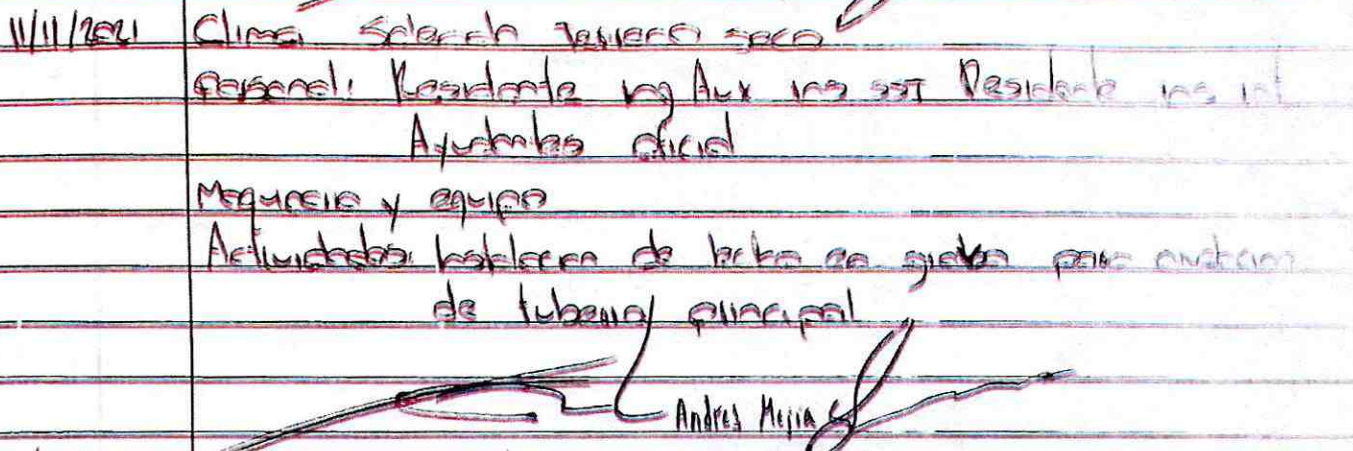 11/11/2021 Clima: Soleado terreno seco
Personal: Residente ing Aux ing SST Residente ing int
Ayudantes oficial
Maquinaria y equipo
Actividades: Instalacion de lecho en grava para
de tuberia principal
Andres Mejia